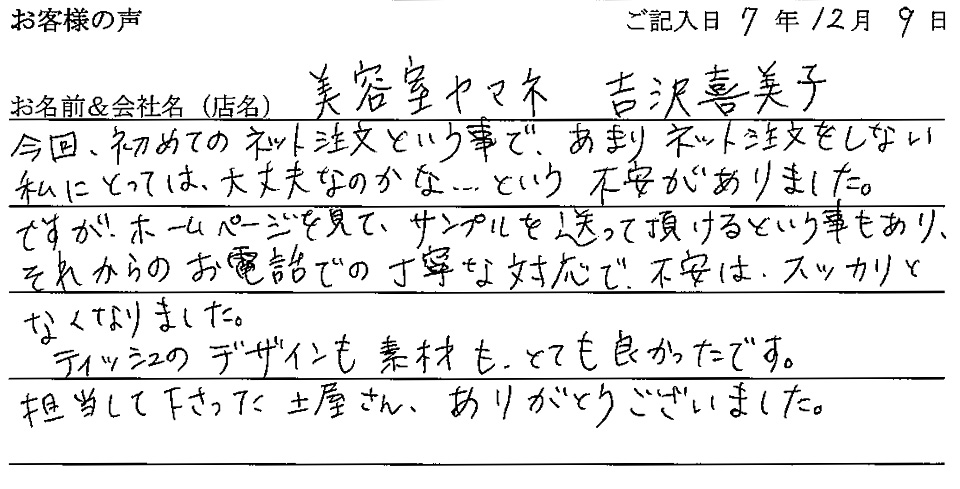 お客様の声 ご記入日 7年12月9日
お名前&会社名(店名) 美容室ヤマネ 吉沢喜美子
今回、初めてのネット注文という事で、あまりネット注文をしない
私にとっては、大丈夫なのかな…という不安がありました。
ですが、ホームページを見て、サンプルを送って頂けるという事もあり、
それからのお電話での丁寧な対応で、不安は、スッカリと
なくなりました。
ティッシュのデザインも素材も、とても良かったです。
担当して下さった土屋さん、ありがとうございました。